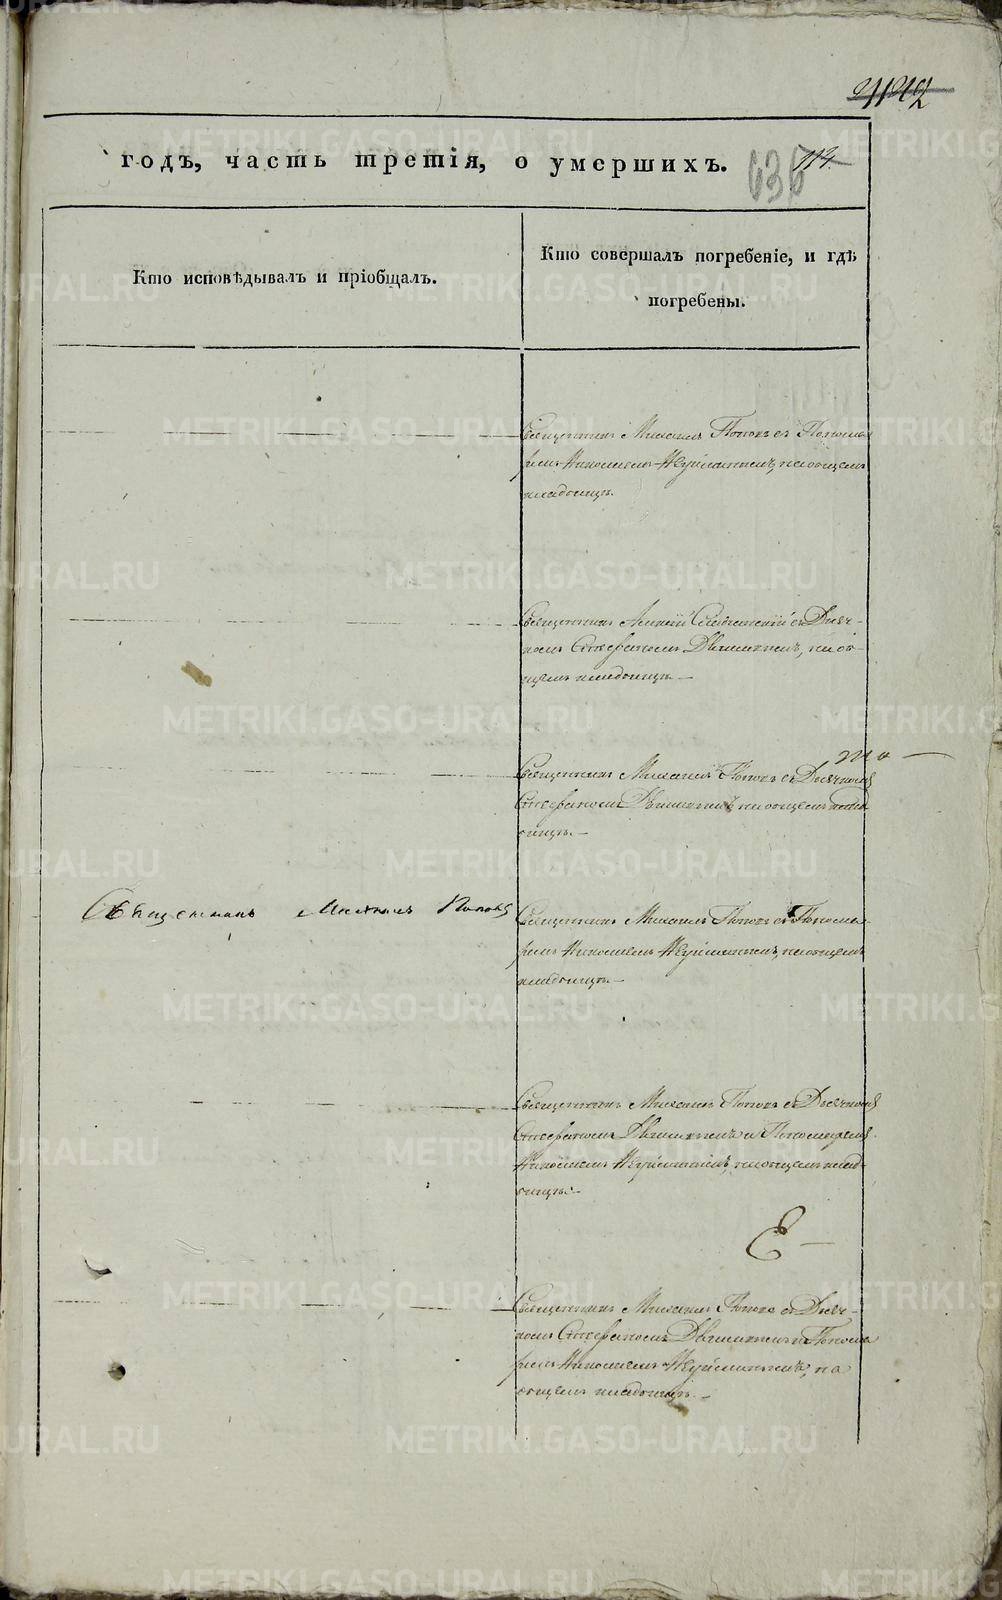 годъ, часть третія, о умершихъ.
636
Кто исповѣдывалъ и пріобщалъ.
Кто совершалъ погребеніе, и гдѣ
погребены.
Священникъ Михаилъ Поповъ съ Понома-
ремъ Николаемъ на общемъ
кладбищѣ.
Священникъ Алексій съ Дьяч-
комъ Стефаномъ на об-
щемъ кладбищѣ. —
Священникъ Михаилъ Поповъ съ Дьячкомъ
Стефаномъ на общемъ клад-
бищѣ. —
Священникъ Михаилъ Поповъ
Священникъ Михаилъ Поповъ съ Понома-
ремъ Николаемъ на общемъ
кладбищѣ. —
Священникъ Михаилъ Поповъ съ Дьячкомъ
Стефаномъ и Пономаремъ
Николаемъ на общемъ клад-
бищѣ. —
Священникъ Михаилъ Поповъ съ Дьяч-
комъ Стефаномъ и Понома-
ремъ Николаемъ на
общемъ кладбищѣ. —
METRIKI.GASO-URAL.RU